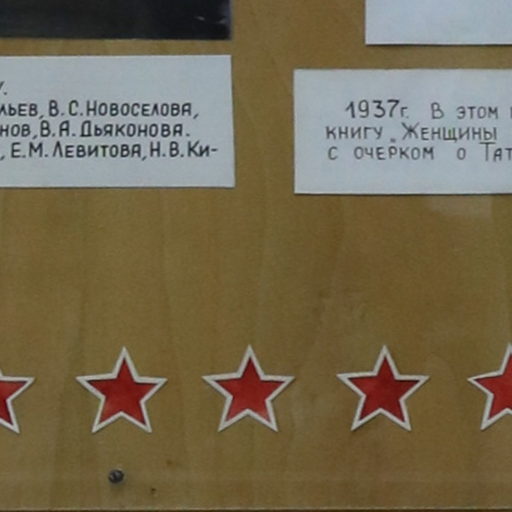 льев, В.С. Новоселова,
нов, В.А. Дьяконова.
, Е.М. Левитова, Н.В. Ки-
1937г. В этом
книгу „Женщины
с очерком о Тат